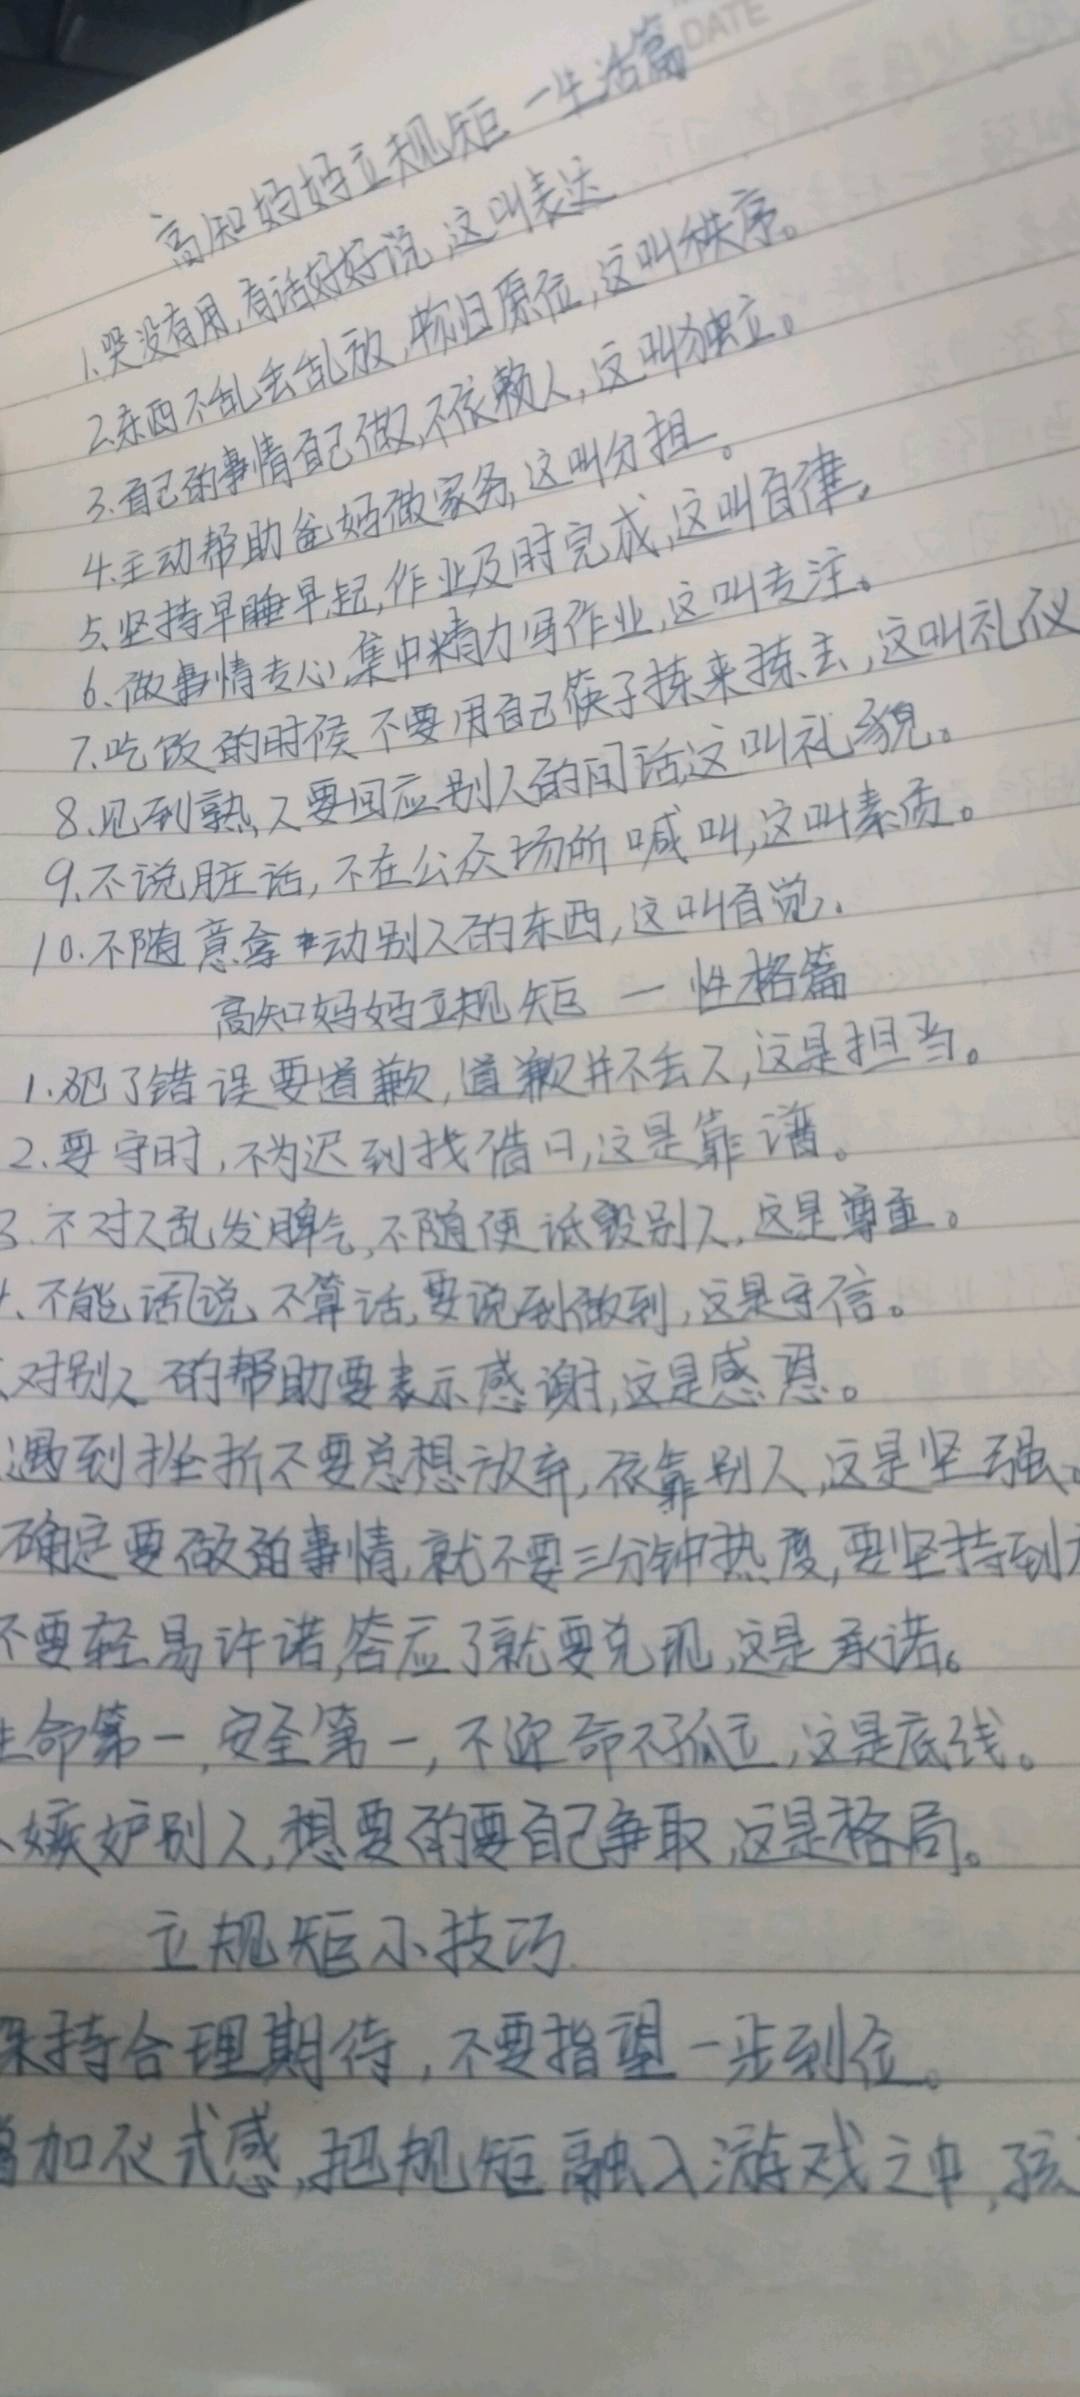 DATE
高知妈妈立规矩一生活篇
1.哭没有用,有话好好说 这叫表达
2.东西不乱丢乱放,物归原位,这叫秩序。
3.自己的事情自己做,不依赖人,这叫独立。
4.主动帮助爸妈做家务,这叫分担。
5.坚持早睡早起,作业及时完成,这叫自律。
6、做事情专心,集中精力写作业,这叫专注。
7.吃饭的时候 不要用自己筷子拣来拣去,这叫礼仪
8、见到熟人要回应别人的问话,这叫礼貌。
9.不说脏话,不在公众场所 喊叫,这叫素质。
10.不随意拿动别人的东西,这叫自觉.
高知妈妈立规矩 一 性格篇
1.犯了错误要道歉,道歉并不丢人,这是担当。
2.要守时,不为迟到找借口,这是靠谱。
3.不对人乱发脾气,不随便诋毁别人,这是尊重。
、不能话说不算话,要说到做到,这是守信。
、对别人的帮助要表示感谢,这是感恩。
遇到挫折不要总想放弃,依靠别人,这是坚强。
确定要做的事情,就不要三分钟热度,要坚持到
不要轻易许诺,答应了就要兑现,这是承诺。
生命第一,安全第一,不 命不孤立,这是底线。
、嫉妒别人,想要的要自己争取,这是格局。
立规矩小技巧
保持合理期待,不要指望一步到位。
增加仪式感,把规矩融入游戏之中,孩